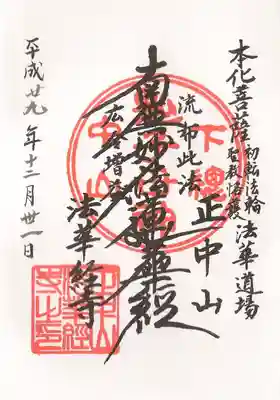 本化菩薩
初転法輪
法華道場
正中山
流布此法
南無妙法蓮華経
広令増益
法華経寺
平成廿九年十二月卅一日
下總
中山